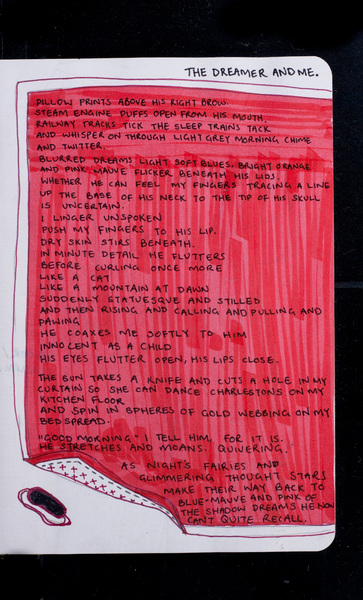 THE DREAMER AND ME.
PILLOW PRINTS ABOVE HIS RIGHT BROW.
STEAM ENGINE PUFFS OPEN FROM HIS MOUTH.
RAILWAY TRACKS TICK THE SLEEP TRAINS TACK
AND WHISPER ON THROUGH LIGHT GREY MORNING CHIME
AND TWITTER.
BLURRED DREAMS, LIGHT SOFT BLUES, BRIGHT ORANGE
AND PINK MAUVE FLICKER BENEATH HIS LIDS.
WHETHER HE CAN FEEL MY FINGERS TRACING A LINE
UP THE BASE OF HIS NECK TO THE TIP OF HIS SKULL
IS UNCERTAIN.
I LINGER UNSPOKEN
PUSH MY FINGERS TO HIS LIP.
DRY SKIN STIRS BENEATH.
IN MINUTE DETAIL HE FLUTTERS
BEFORE CURLING ONCE MORE
LIKE A CAT
LIKE A MOUNTAIN AT DAWN
SUDDENLY STATUESQUE AND STILLED
AND THEN RISING AND CALLING AND PULLING AND
PAWING
HE COAXES ME SOFTLY TO HIM
INNOCENT AS A CHILD
HIS EYES FLUTTER OPEN, HIS LIPS CLOSE.
THE SUN TAKES A KNIFE AND CUTS A HOLE IN MY
CURTAIN SO SHE CAN DANCE CHARLESTONS ON MY
KITCHEN FLOOR
AND SPIN IN SPHERES OF GOLD WEBBING ON MY
BEDSPREAD.
"GOOD MORNING" I TELL HIM, FOR IT IS.
HE STRETCHES AND MOANS. QUIVERING.
AS NIGHT'S FAIRIES AND
GLIMMERING THOUGHT STARS
MAKE THEIR WAY BACK TO
BLUE-MAUVE AND PINK OF
THE SHADOW DREAMS HE NOW
CANT QUITE RECALL.